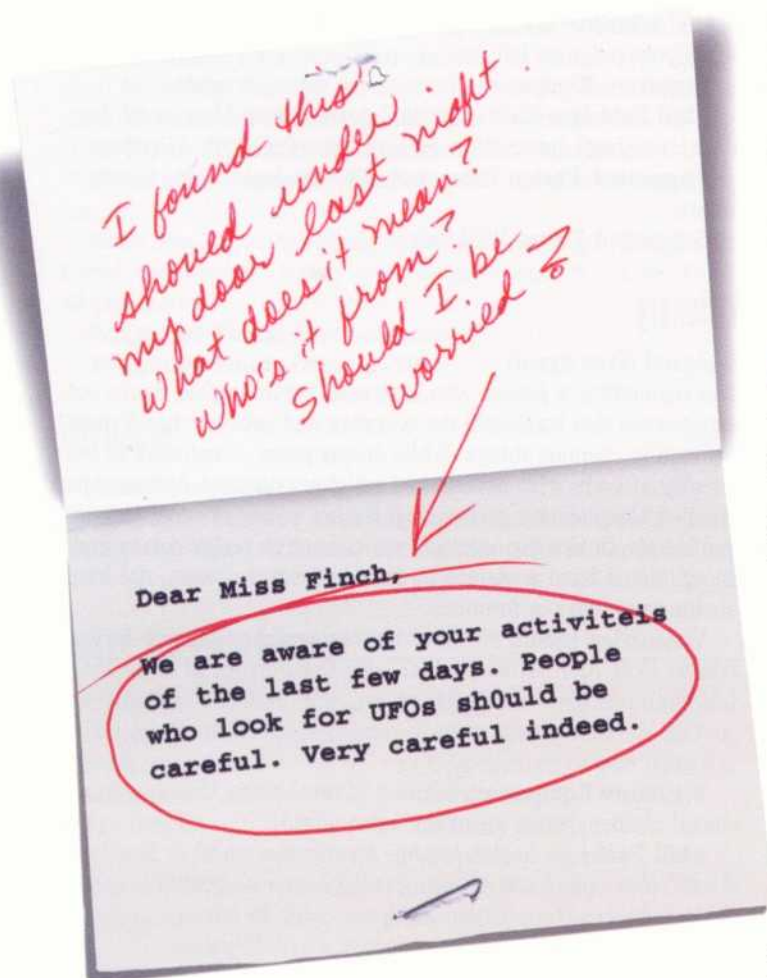 I found this
should under
my door last night.
What does it mean?
Who's it from?
Should I be
worried?
Dear Miss Finch,
We are aware of your activiteis
of the last few days. People
who look for UFOs sh0uld be
careful. Very careful indeed.